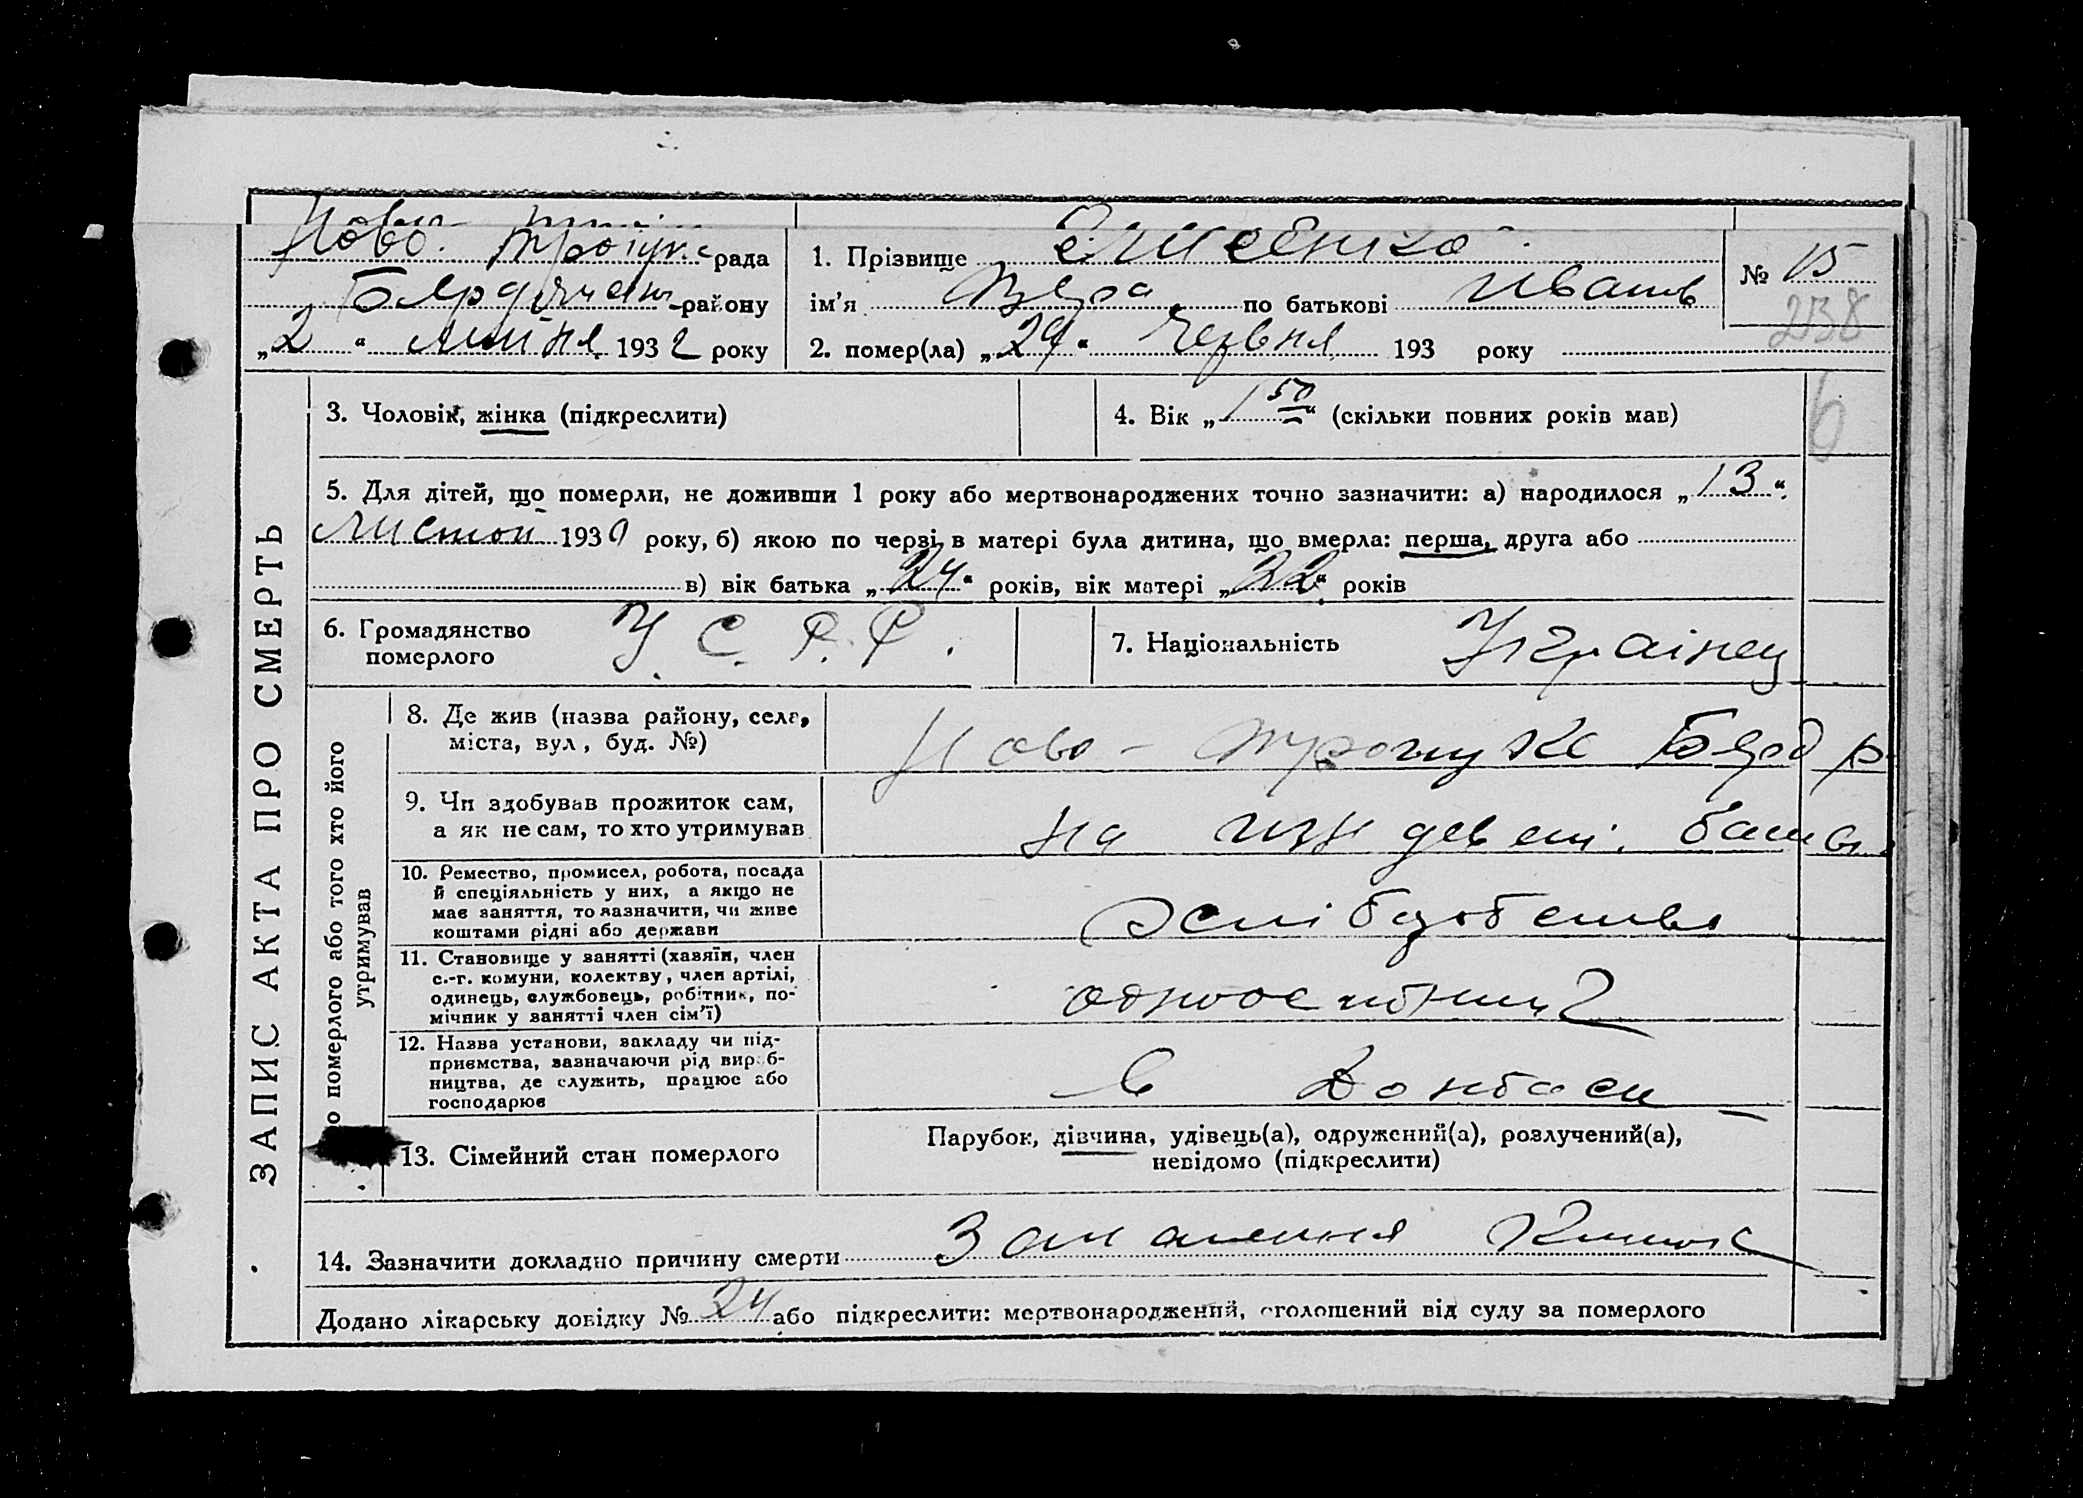 Ново-Троїцьк рада
Бердичан району
„2“ липня 1932 року
1. Прізвище Єлисєєнко
ім'я Вера по батькові Иванов
2. помер(ла) „29“ Червня 193 року
№ 15
238
3. Чоловік, жінка (підкреслити)
4. Вік „1 50“ (скільки повних років мав)
6
5. Для дітей, що померли, не доживши 1 року або мертвонароджених точно зазначити: а) народилося „13“
Листоп 1930 року, б) якою по черзі в матері була дитина, що вмерла: перша, друга або
в) вік батька „24“ років, вік матері „22“ років
6. Громадянство
померлого
У.С.Р.Р.
7. Національність Українец
ЗАПИС АКТА ПРО СМЕРТЬ
о померлого або того хто його
утримував
8. Де жив (назва району, села,
міста, вул, буд. №)
Ново-Троицке Берд р
9. Чи здобував прожиток сам,
а як не сам, то хто утримував
на иждевені батьк
10. Ремество, промисел, робота, посада
й спеціяльність у них, а якщо не
має заняття, то зазначити, чи живе
коштами рідні або держави
11. Становище у занятті (хазяїн, член
с.-г. комуни, колектву, член артілі,
одинець, службовець, робітник, по-
мічник у занятті член сім'ї)
12. Назва установи, закладу чи під-
приємства, зазначаючи рід вироб-
ництва, де служить, працює або
господарює
в Донбаси
13. Сімейний стан померлого
Парубок, дівчина, удівець(а), одружений(а), розлучений(а),
невідомо (підкреслити)
14. Зазначити докладно причину смерти Запалення Кишок
Додано лікарську довідку № 24 або підкреслити: мертвонароджений, оголошений від суду за померлого